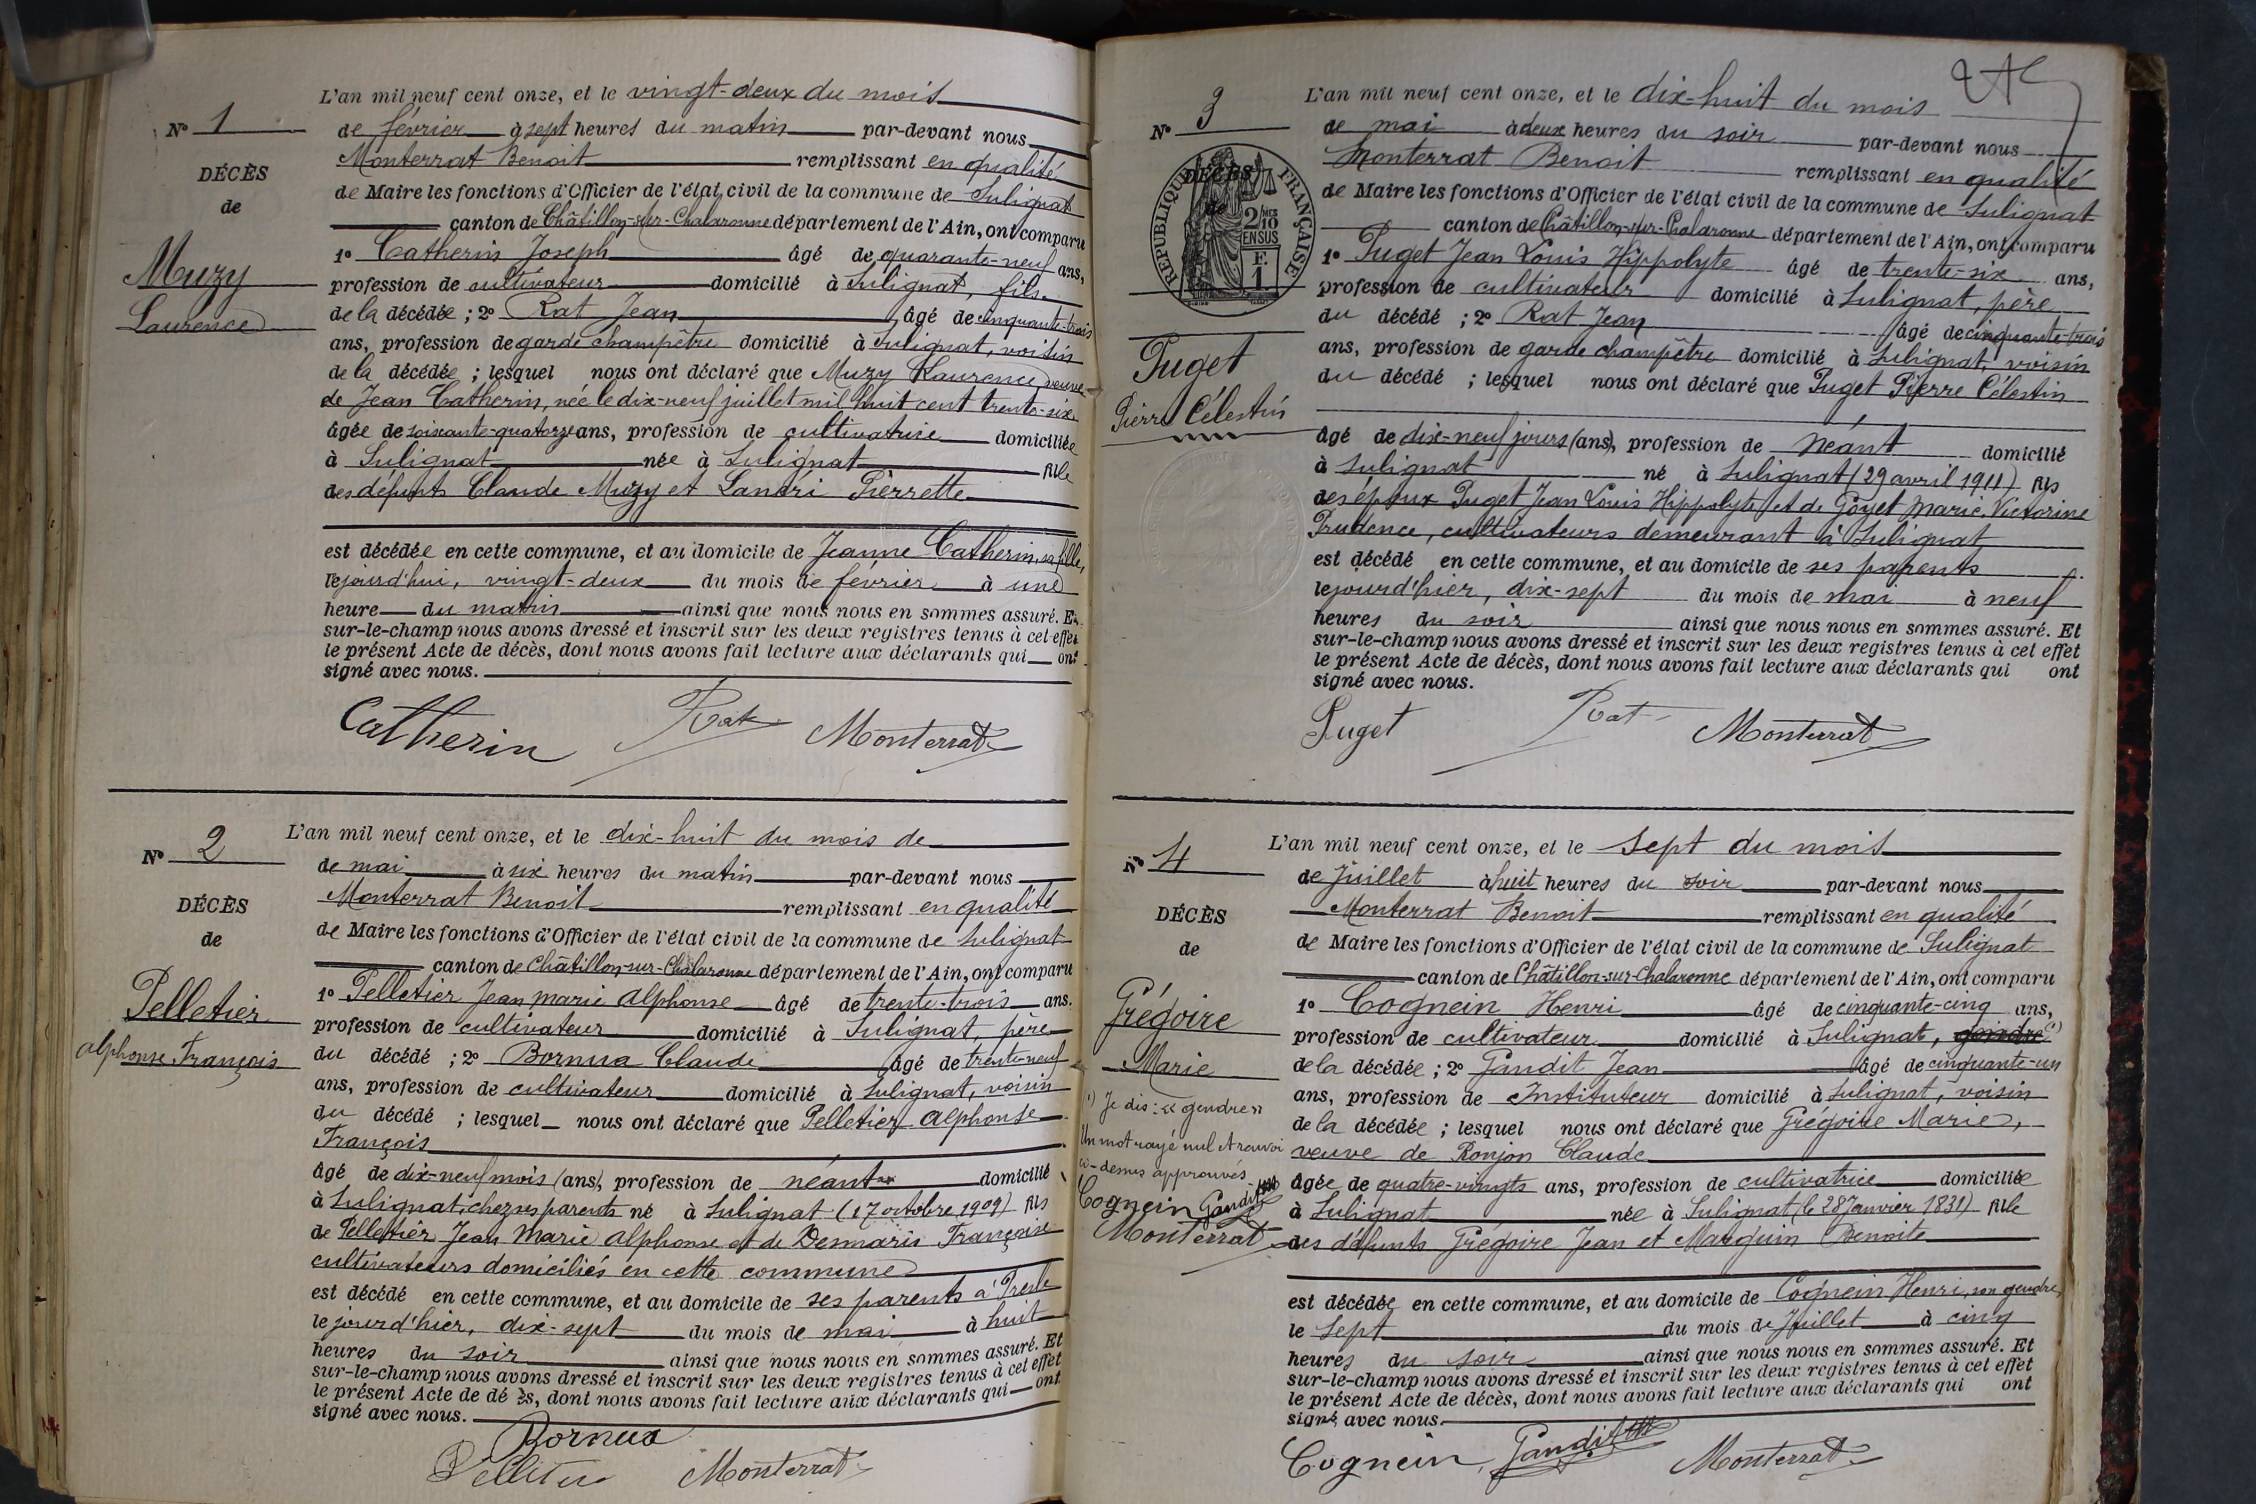 N° 1
DÉCÈS
de
Muzy
Laurence
L'an mil neuf cent onze, et le vingt-deux du mois
de février à sept heures du matin par-devant nous
Monterrat Benoit remplissant en qualité
de Maire les fonctions d'Officier de l'état civil de la commune de Sulignat
canton de Châtillon-sur-Chalaronne département de l'Ain, ont comparu
1° Catherin Joseph âgé de quarante-neuf ans,
profession de cultivateur domicilié à Sulignat, fils
de la décédée ; 2° Rat Jean âgé de cinquante-trois
ans, profession de garde champêtre domicilié à Sulignat, voisin
de la décédée ; lesquel nous ont déclaré que Muzy Laurence, veuve
de Jean Catherin, née le dix-neuf juillet mil huit cent trente-six
âgée de soixante-quatorze ans, profession de cultivatrice domiciliée
à Sulignat née à Sulignat fille
des défunts Claude Muzy et Landri Pierrette
est décédée en cette commune, et au domicile de Jeanne Catherin, sa fille,
le jourd'hui, vingt-deux du mois de février à une
heure du matin ainsi que nous nous en sommes assuré. Et
sur-le-champ nous avons dressé et inscrit sur les deux registres tenus à cet effet
le présent Acte de décès, dont nous avons fait lecture aux déclarants qui ont
signé avec nous.
Catherin Rat Monterrat
N° 2
DÉCÈS
de
Pelletier
Alphonse François
L'an mil neuf cent onze, et le dix-huit du mois de
de mai à six heures du matin par-devant nous
Monterrat Benoit remplissant en qualité
de Maire les fonctions d'Officier de l'état civil de la commune de Sulignat
canton de Châtillon-sur-Chalaronne département de l'Ain, ont comparu
1° Pelletier Jean Marie Alphonse âgé de trente-trois ans.
profession de cultivateur domicilié à Sulignat, père
du décédé ; 2° Bornua Claude âgé de trente-neuf
ans, profession de cultivateur domicilié à Sulignat, voisin
du décédé ; lesquel nous ont déclaré que Pelletier Alphonse
François
âgé de dix-neuf mois (ans), profession de néant domicilié
à Sulignat, chez ses parents né à Sulignat (17 octobre 1909) fils
de Pelletier Jean Marie Alphonse et de Desmaris Françoise
cultivateurs domiciliés en cette commune
est décédé en cette commune, et au domicile de ses parents à Presle
le jourd'hier, dix-sept du mois de mai à huit
heures du soir ainsi que nous nous en sommes assuré. Et
sur-le-champ nous avons dressé et inscrit sur les deux registres tenus à cet effet
le présent Acte de dé ès, dont nous avons fait lecture aux déclarants qui ont
signé avec nous.
Bornua
Pelletier Monterrat
N° 3
DÉCÈS
de
RÉPUBLIQUE FRANÇAISE
2/10
EN SUS
F.
1.
Puget
Pierre Célestin
L'an mil neuf cent onze, et le dix-huit du mois
de mai à deux heures du soir par-devant nous
Monterrat Benoit remplissant en qualité
de Maire les fonctions d'Officier de l'état civil de la commune de Sulignat
canton de Châtillon-sur-Chalaronne département de l'Ain, ont comparu
1° Puget Jean Louis Hippolyte âgé de trente-six ans,
profession de cultivateur domicilié à Sulignat, père
du décédé ; 2° Rat Jean âgé de cinquante-trois
ans, profession de garde champêtre domicilié à Sulignat, voisin
du décédé ; lesquel nous ont déclaré que Puget Pierre Célestin
âgé de dix-neuf jours (ans), profession de néant domicilié
à Sulignat né à Sulignat (29 avril 1911) fils
des époux Puget Jean Louis Hippolyte et de Goyet Marie Victorine
Prudence, cultivateurs demeurant à Sulignat
est décédé en cette commune, et au domicile de ses parents
le jourd'hier, dix-sept du mois de mai à neuf
heures du soir ainsi que nous nous en sommes assuré. Et
sur-le-champ nous avons dressé et inscrit sur les deux registres tenus à cet effet
le présent Acte de décès, dont nous avons fait lecture aux déclarants qui ont
signé avec nous.
Puget Rat Monterrat
N° 4
DÉCÈS
de
Grégoire
Marie
1) Je dis : « gendre »
Un mot rayé nul et renvoi
ci-dessus approuvés
Cognein Gandit
Monterrat
L'an mil neuf cent onze, et le sept du mois
de Juillet à huit heures du soir par-devant nous
Monterrat Benoit remplissant en qualité
de Maire les fonctions d'Officier de l'état civil de la commune de Sulignat
canton de Châtillon-sur-Chalaronne département de l'Ain, ont comparu
1° Cognein Henri âgé de cinquante-cinq ans,
profession de cultivateur domicilié à Sulignat, (1)
de la décédée ; 2° Gandit Jean âgé de cinquante-un
ans, profession de Instituteur domicilié à Sulignat, voisin
de la décédée ; lesquel nous ont déclaré que Grégoire Marie,
veuve de Ronjon Claude
âgée de quatre-vingts ans, profession de cultivatrice domiciliée
à Sulignat née à Sulignat (le 28 Janvier 1831) fille
des défunts Grégoire Jean et Manguin Benoite
est décédée en cette commune, et au domicile de Cognein Henri, son gendre,
le sept du mois de Juillet à cinq
heures du soir ainsi que nous nous en sommes assuré. Et
sur-le-champ nous avons dressé et inscrit sur les deux registres tenus à cet effet
le présent Acte de décès, dont nous avons fait lecture aux déclarants qui ont
signé avec nous.
Cognein Gandit Monterrat